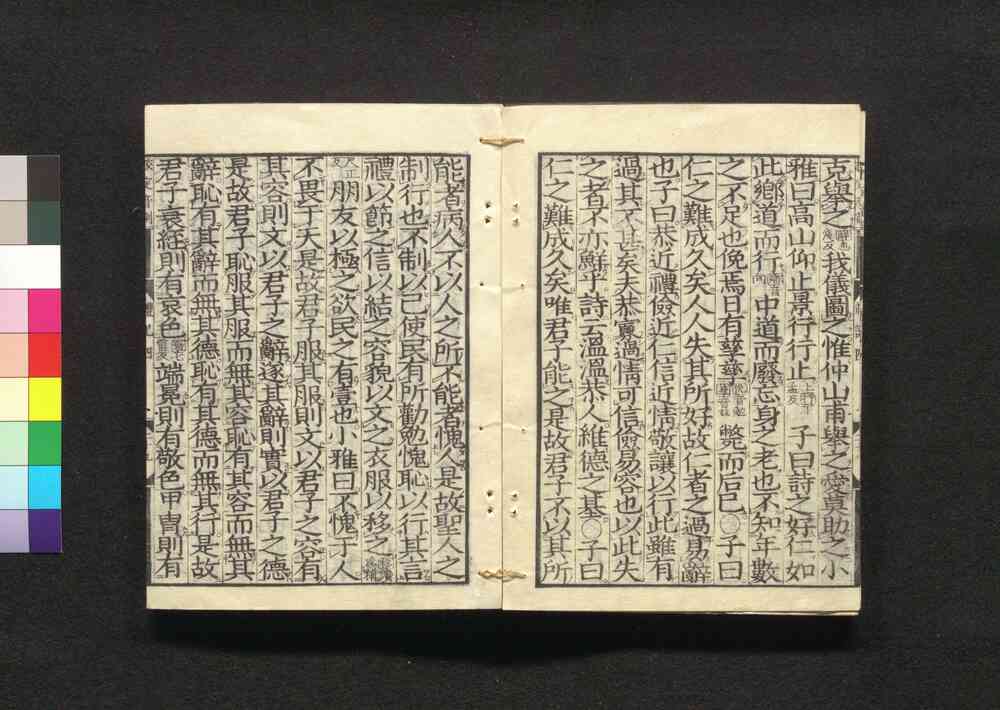 克擧之我儀圖之惟仲山甫擧之愛莫助之小
雅曰高山仰止景行行止子曰詩之好仁如
此鄕道而行中道而廢忘身之老也不知年數
之不足也俛焉日有孳孳斃而后已〇子曰
仁之難成久矣人人失其所好故仁者之過易辭
也子曰恭近禮儉近仁信近情敬讓以行此雖有
過其不甚矣夫恭寡過情可信儉易容也以此失
之者不亦鮮乎詩云溫溫恭人維德之基〇子曰
仁之難成久矣唯君子能之是故君子不以其所
能者病人不以人之所不能者愧人是故聖人之
制行也不制以己使民有所勸勉愧恥以行其言
禮以節之信以結之容貌以文之衣服以移之
朋友以極之欲民之有壹也小雅曰不愧于人
不畏于天是故君子服其服則文以君子之容有
其容則文以君子之辭遂其辭則實以君子之德
是故君子恥服其服而無其容恥有其容而無其
辭恥有其辭而無其德恥有其德而無其行是故
君子衰絰則有哀色端冕則有敬色甲冑則有